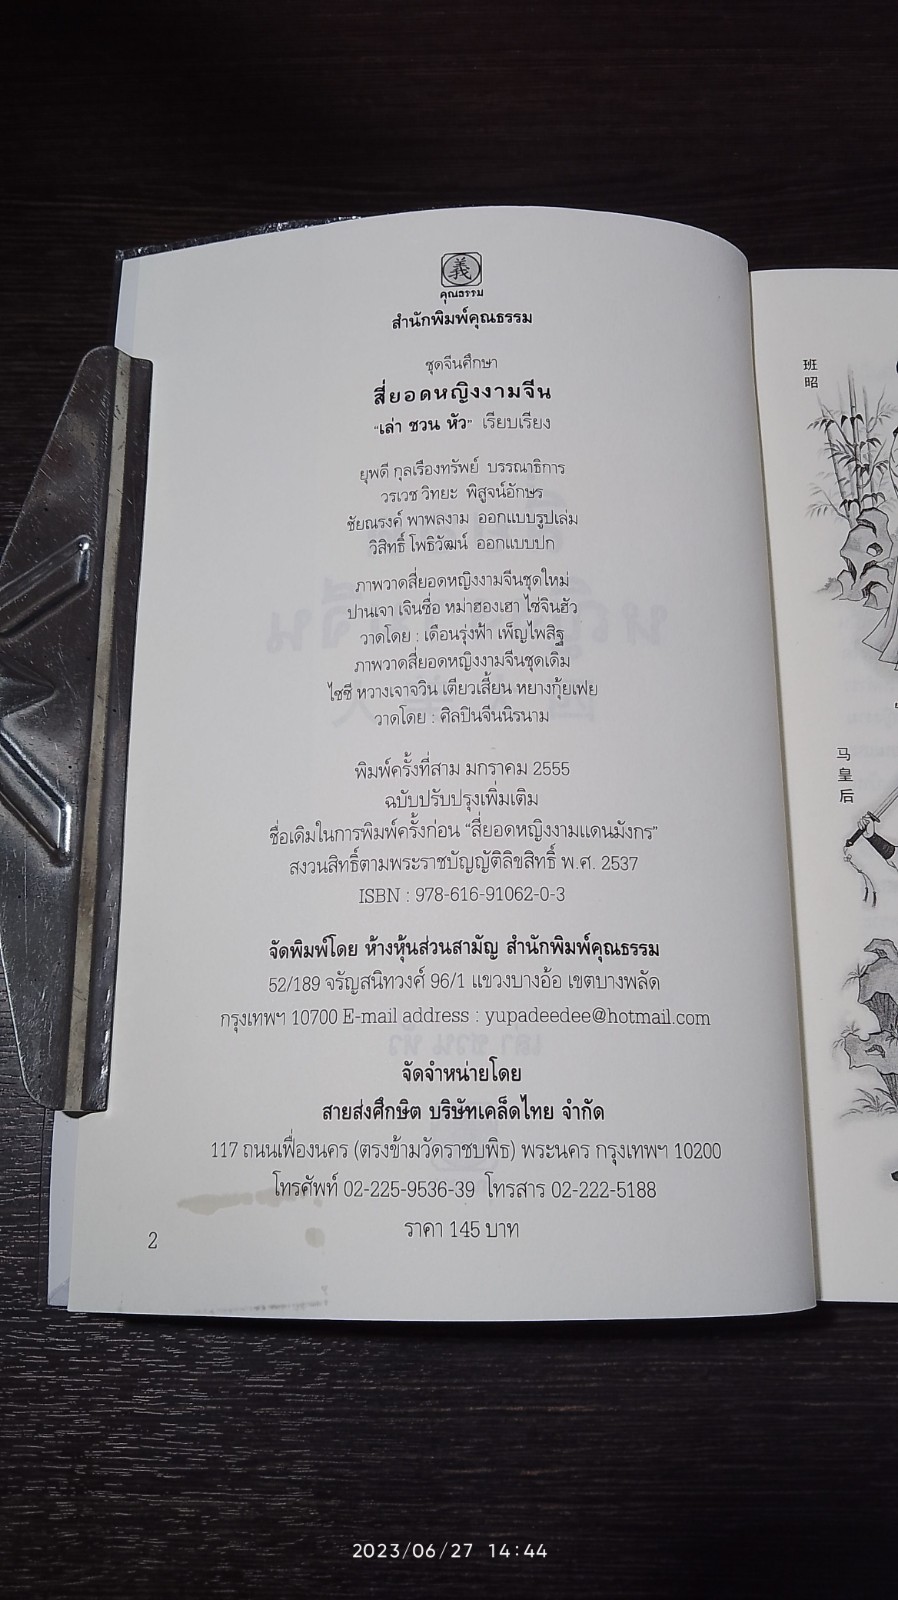 義
คุณธรรม
สำนักพิมพ์คุณธรรม
ชุดจีนศึกษา
สี่ยอดหญิงงามจีน
"เล่า ชวน หัว" เรียบเรียง
ยุพดี กุลเรืองทรัพย์ บรรณาธิการ
วรเวช วิทยะ พิสูจน์อักษร
ชัยณรงค์ พาพลงาม ออกแบบรูปเล่ม
วิสิทธิ์ โพธิวัฒน์ ออกแบบปก
ภาพวาดสี่ยอดหญิงงามจีนชุดใหม่
ปานเจา เจินซื่อ หม่าฮองเฮา ไซ่จินฮัว
วาดโดย : เดือนรุ่งฟ้า เพ็ญไพสิฐ
ภาพวาดสี่ยอดหญิงงามจีนชุดเดิม
ไซซี หวางเจาจวิน เตียวเสี้ยน หยางกุ้ยเฟย
วาดโดย : ศิลปินจีนนิรนาม
พิมพ์ครั้งที่สาม มกราคม 2555
ฉบับปรับปรุงเพิ่มเติม
ชื่อเดิมในการพิมพ์ครั้งก่อน "สี่ยอดหญิงงามแดนมังกร"
สงวนสิทธิ์ตามพระราชบัญญัติลิขสิทธิ์ พ.ศ. 2537
ISBN : 978-616-91062-0-3
จัดพิมพ์โดย ห้างหุ้นส่วนสามัญ สำนักพิมพ์คุณธรรม
52/189 จรัญสนิทวงศ์ 96/1 แขวงบางอ้อ เขตบางพลัด
กรุงเทพฯ 10700 E-mail address : yupadeedee@hotmail.com
จัดจำหน่ายโดย
สายส่งศึกษิต บริษัทเคล็ดไทย จำกัด
117 ถนนเฟื่องนคร (ตรงข้ามวัดราชบพิธ) พระนคร กรุงเทพฯ 10200
โทรศัพท์ 02-225-9536-39 โทรสาร 02-222-5188
ราคา 145 บาท
2
班昭
马皇后
2023/06/27 14:44